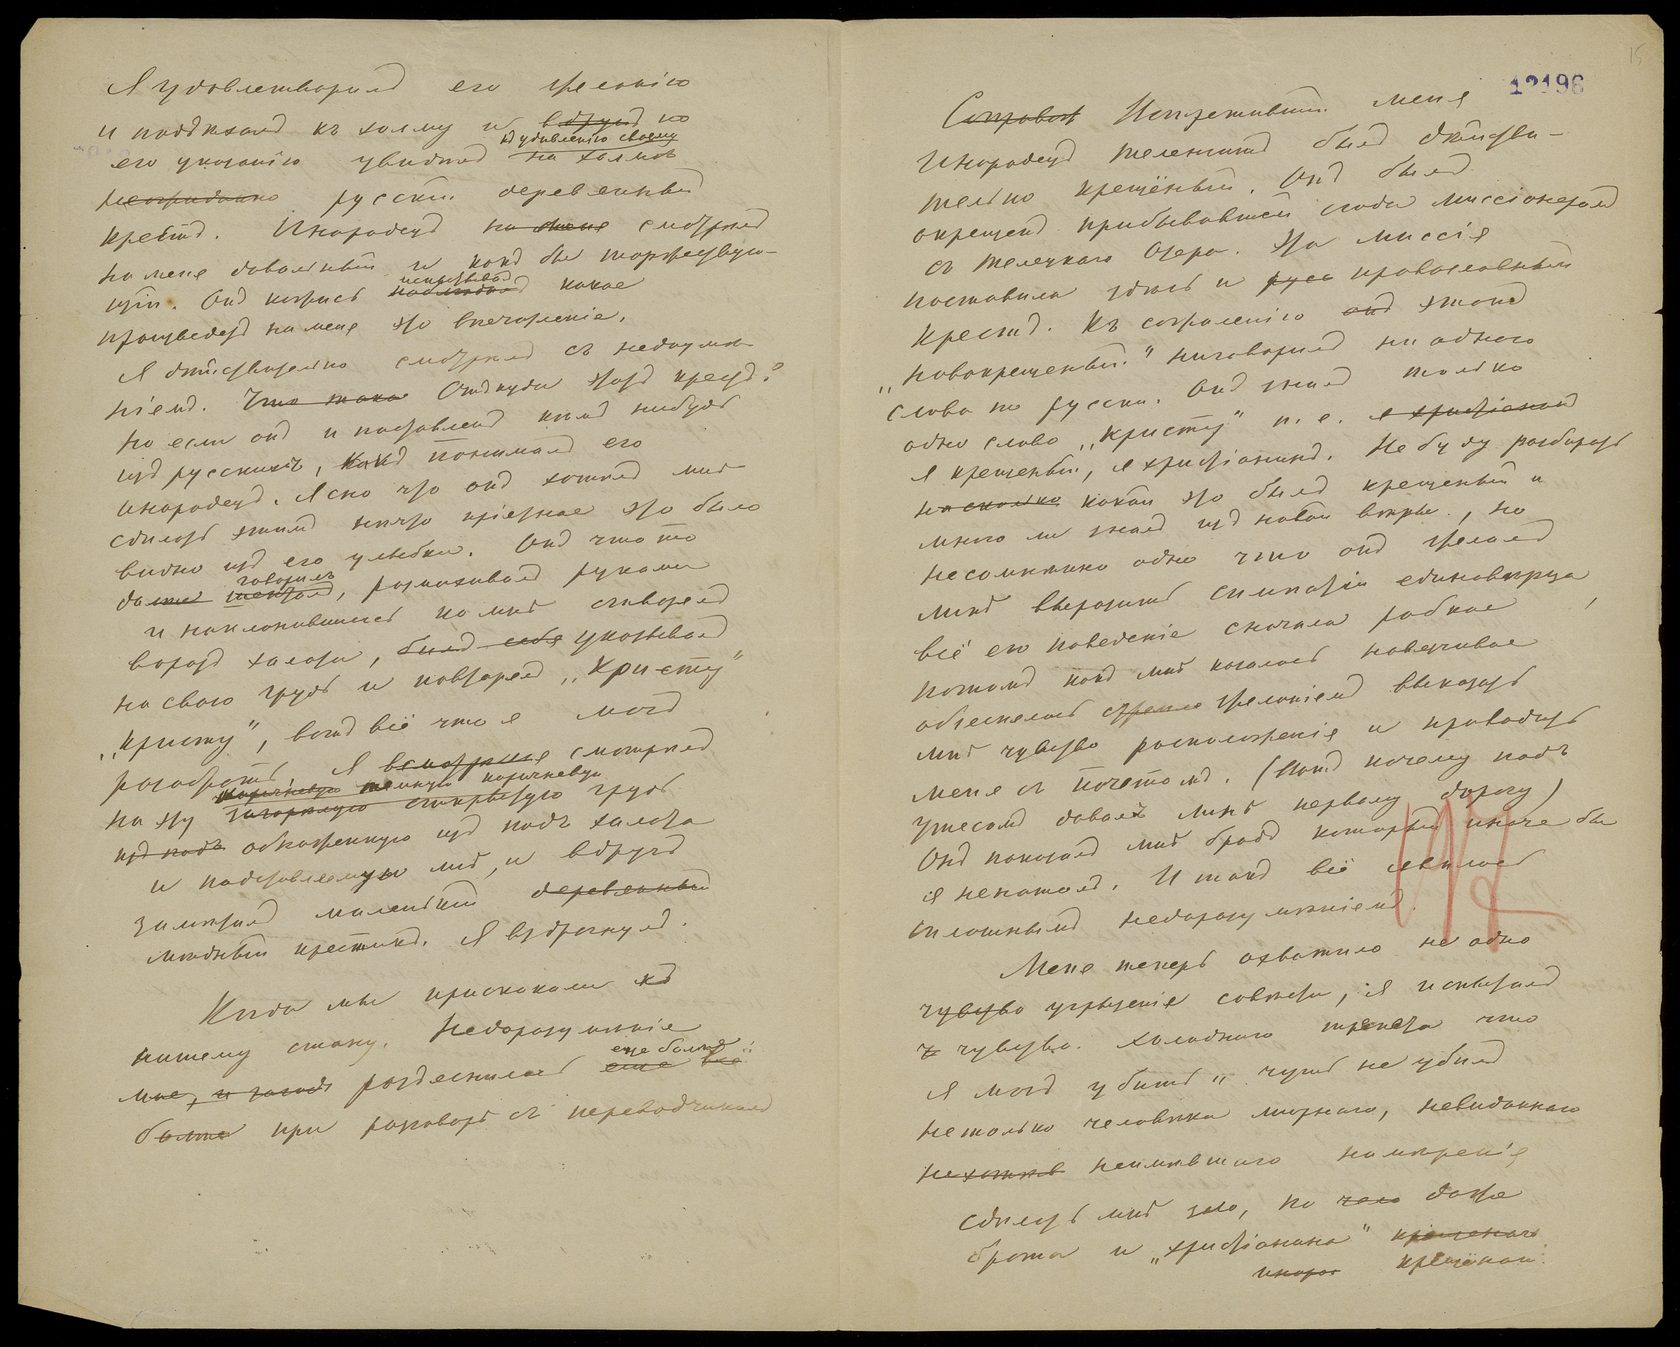 Я удовлетворилъ его желанію
и подъѣхалъ къ холму и вдругъ по
къ удивленію своему
его указанію увидѣлъ на холмѣ
неожиданно русскій деревянный
крестъ. Инородецъ на меня смотрѣлъ
на меня довольный и какъ бы торжествую-
щій. Онъ кажись наблюдалъ какое
испытывалъ
произведетъ на меня это впечатленіе.
Я дѣйствительно смотрѣлъ съ недоумѣ-
ніемъ. Что такое Откуда этотъ крестъ?
Но если онъ и поставленъ кѣмъ нибудь
изъ русскихъ, какъ понималъ его
инородецъ. Ясно что онъ хотѣлъ мнѣ
сдѣлать этимъ нѣчто пріятное это было
видно изъ его улыбки. Онъ что то
говорилъ
далѣе шепталъ, размахивалъ руками
и наклонившись ко мнѣ отворялъ
воротъ халата, билъ себя указывалъ
на свою грудь и повторялъ „Кристу"
„Кристу", вотъ всё что я могъ
разобрать. Я всмотрѣлся смотрѣлъ
коричневую темную коричневую
на эту загорѣлую открытую грудь
изъ подъ обнаженную изъ подъ халата
и подставленную мнѣ, и вдругъ
замѣтилъ маленькій деревянный
мѣдный крестикъ. Я вздрогнулъ.
Когда мы прискакали къ
нашему стану. Недоразумѣніе
еще болѣе
мое, и загадъ разъяснилось еще все
болѣе при разговорѣ съ переводчикомъ
12196
15
Сопровож Испугавшій меня
Инородецъ теленгитъ былъ дѣйстви-
тельно крещёный. Онъ былъ
окрещенъ прибывавшей сюда миссіонеромъ
съ Телецкаго Озера. Эта миссія
поставила здѣсь и русс православный
Крестъ. Къ сожаленію онъ этотъ
„новокрещеный" неговорилъ ни одного
слова по русски. Онъ зналъ только
одно слово „Кристу" т. е. я христіанинъ
Я крещеный, я христіанинъ. Не буду разбирать
на сколько какой это былъ крещеный и
много ли зналъ изъ новой вѣры, но
несомнѣнно одно что онъ желалъ
мнѣ выразить симпатіи единовѣрца
всё его поведеніе сначала робкое
потомъ какъ мнѣ казалось навязчивое
объяснялось стремле желаніемъ выказать
мнѣ чувство расположенія и проводить
меня съ почетомъ. (Вотъ почему подъ
утесомъ давалъ мнѣ первому дорогу)
Онъ показалъ мнѣ бродъ который иначе бы
я ненашолъ. И такъ всё явилось
сплошнымъ недоразумѣніемъ.
Меня теперь охватило не одно
чувство угрызенія совѣсти, я испыталъ
ч чувство холоднаго трепета что
я могъ убить и чуть не убилъ
нетолько человѣка мирнаго, невиданнаго
нехотѣв неимѣвшаго намѣренія
сдѣлать мнѣ зло, но чело даже
брата и „христіанина" крещенаго
инород крещёнаго